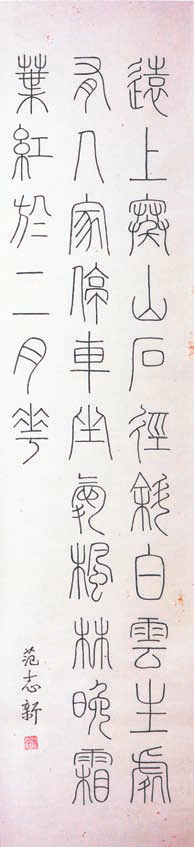 遠上寒山石徑斜白雲生處
有人家停車坐愛楓林晚霜
葉紅於二月花
范志新